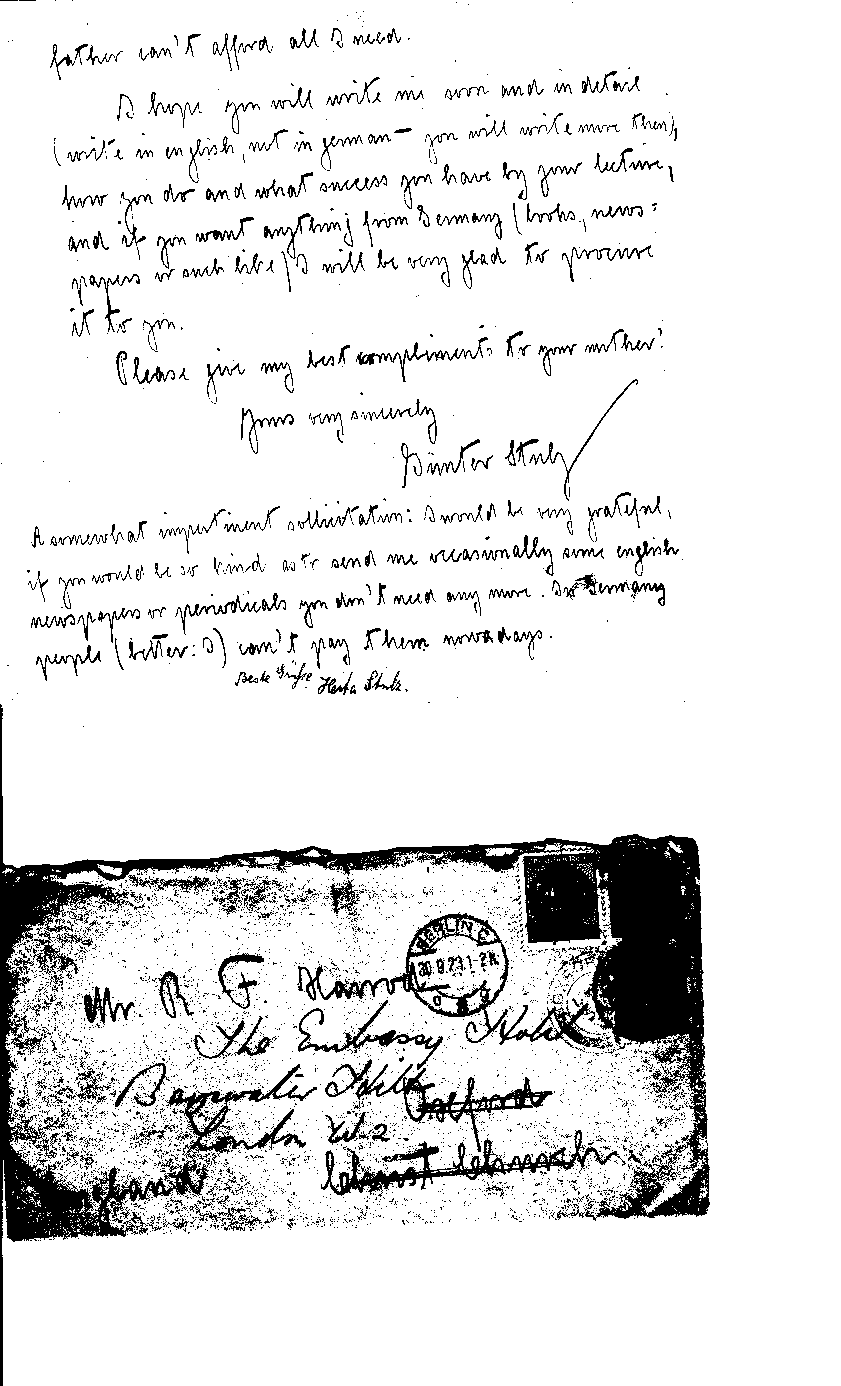 father can't afford all I need.
I hope you will write me soon and in detail
(write in english, not in german — you will write more then),
how you do and what success you have by your lecture,
and if you want anything from Germany (books, news=
papers or such like) I will be very glad to procure
it to you.
Please give my best compliments to your mother!
Yours very sincerely
Günter Stulz
A somewhat impertinent sollicitation: I would be very grateful,
if you would be so kind as to send me occasionally some english
newspapers or periodicals you don't need any more. In Germany
people (better: I) can't pay them nowadays.
Beste Grüße Herta Stulz.
BERLIN C
Mr. R F. Harrod
20.9.23.1-2N
The Embassy Hotel
Bayswater Hill
Oxford
London W.2.
Christ Church.
England